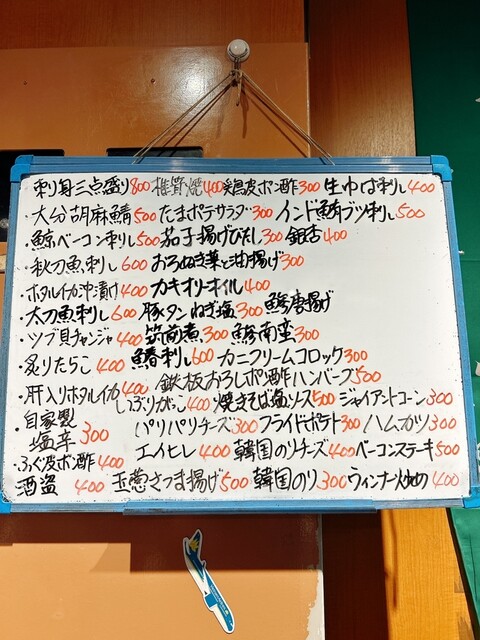 刺身三点盛り800 椎茸焼400 鶏皮ポン酢300 生ゆば刺し400
・大分胡麻鯖500 たまポテサラダ300 インド鮪ブツ刺し500
・鯨ベーコン刺し500 茄子揚げびたし300 銀杏400
・秋刀魚刺し600 おろぬき葉と油揚げ300
・ホタルイカ沖漬け400 カキオリーオイル400
・太刀魚刺し600 豚タンねぎ塩300 鯵唐揚げ
・ツブ貝チャンジャ400 筑前煮300 鯵南蛮300
・炙りたらこ400 鰆刺し600 カニクリームコロッケ300
・肝入りホタルイカ400 鉄板おろしポン酢ハンバーグ500
・自家製塩辛300 いぶりがっこ400 焼きそば塩ソース500 ジャイアントコーン300
パリパリチーズ300 フライドポテト300 ハムカツ300
・ふぐ皮ポン酢400 エイヒレ400 韓国のりチーズ400 ベーコンステーキ500
酒盗400 玉葱さつま揚げ500 韓国のり300 ウィンナー炒め400